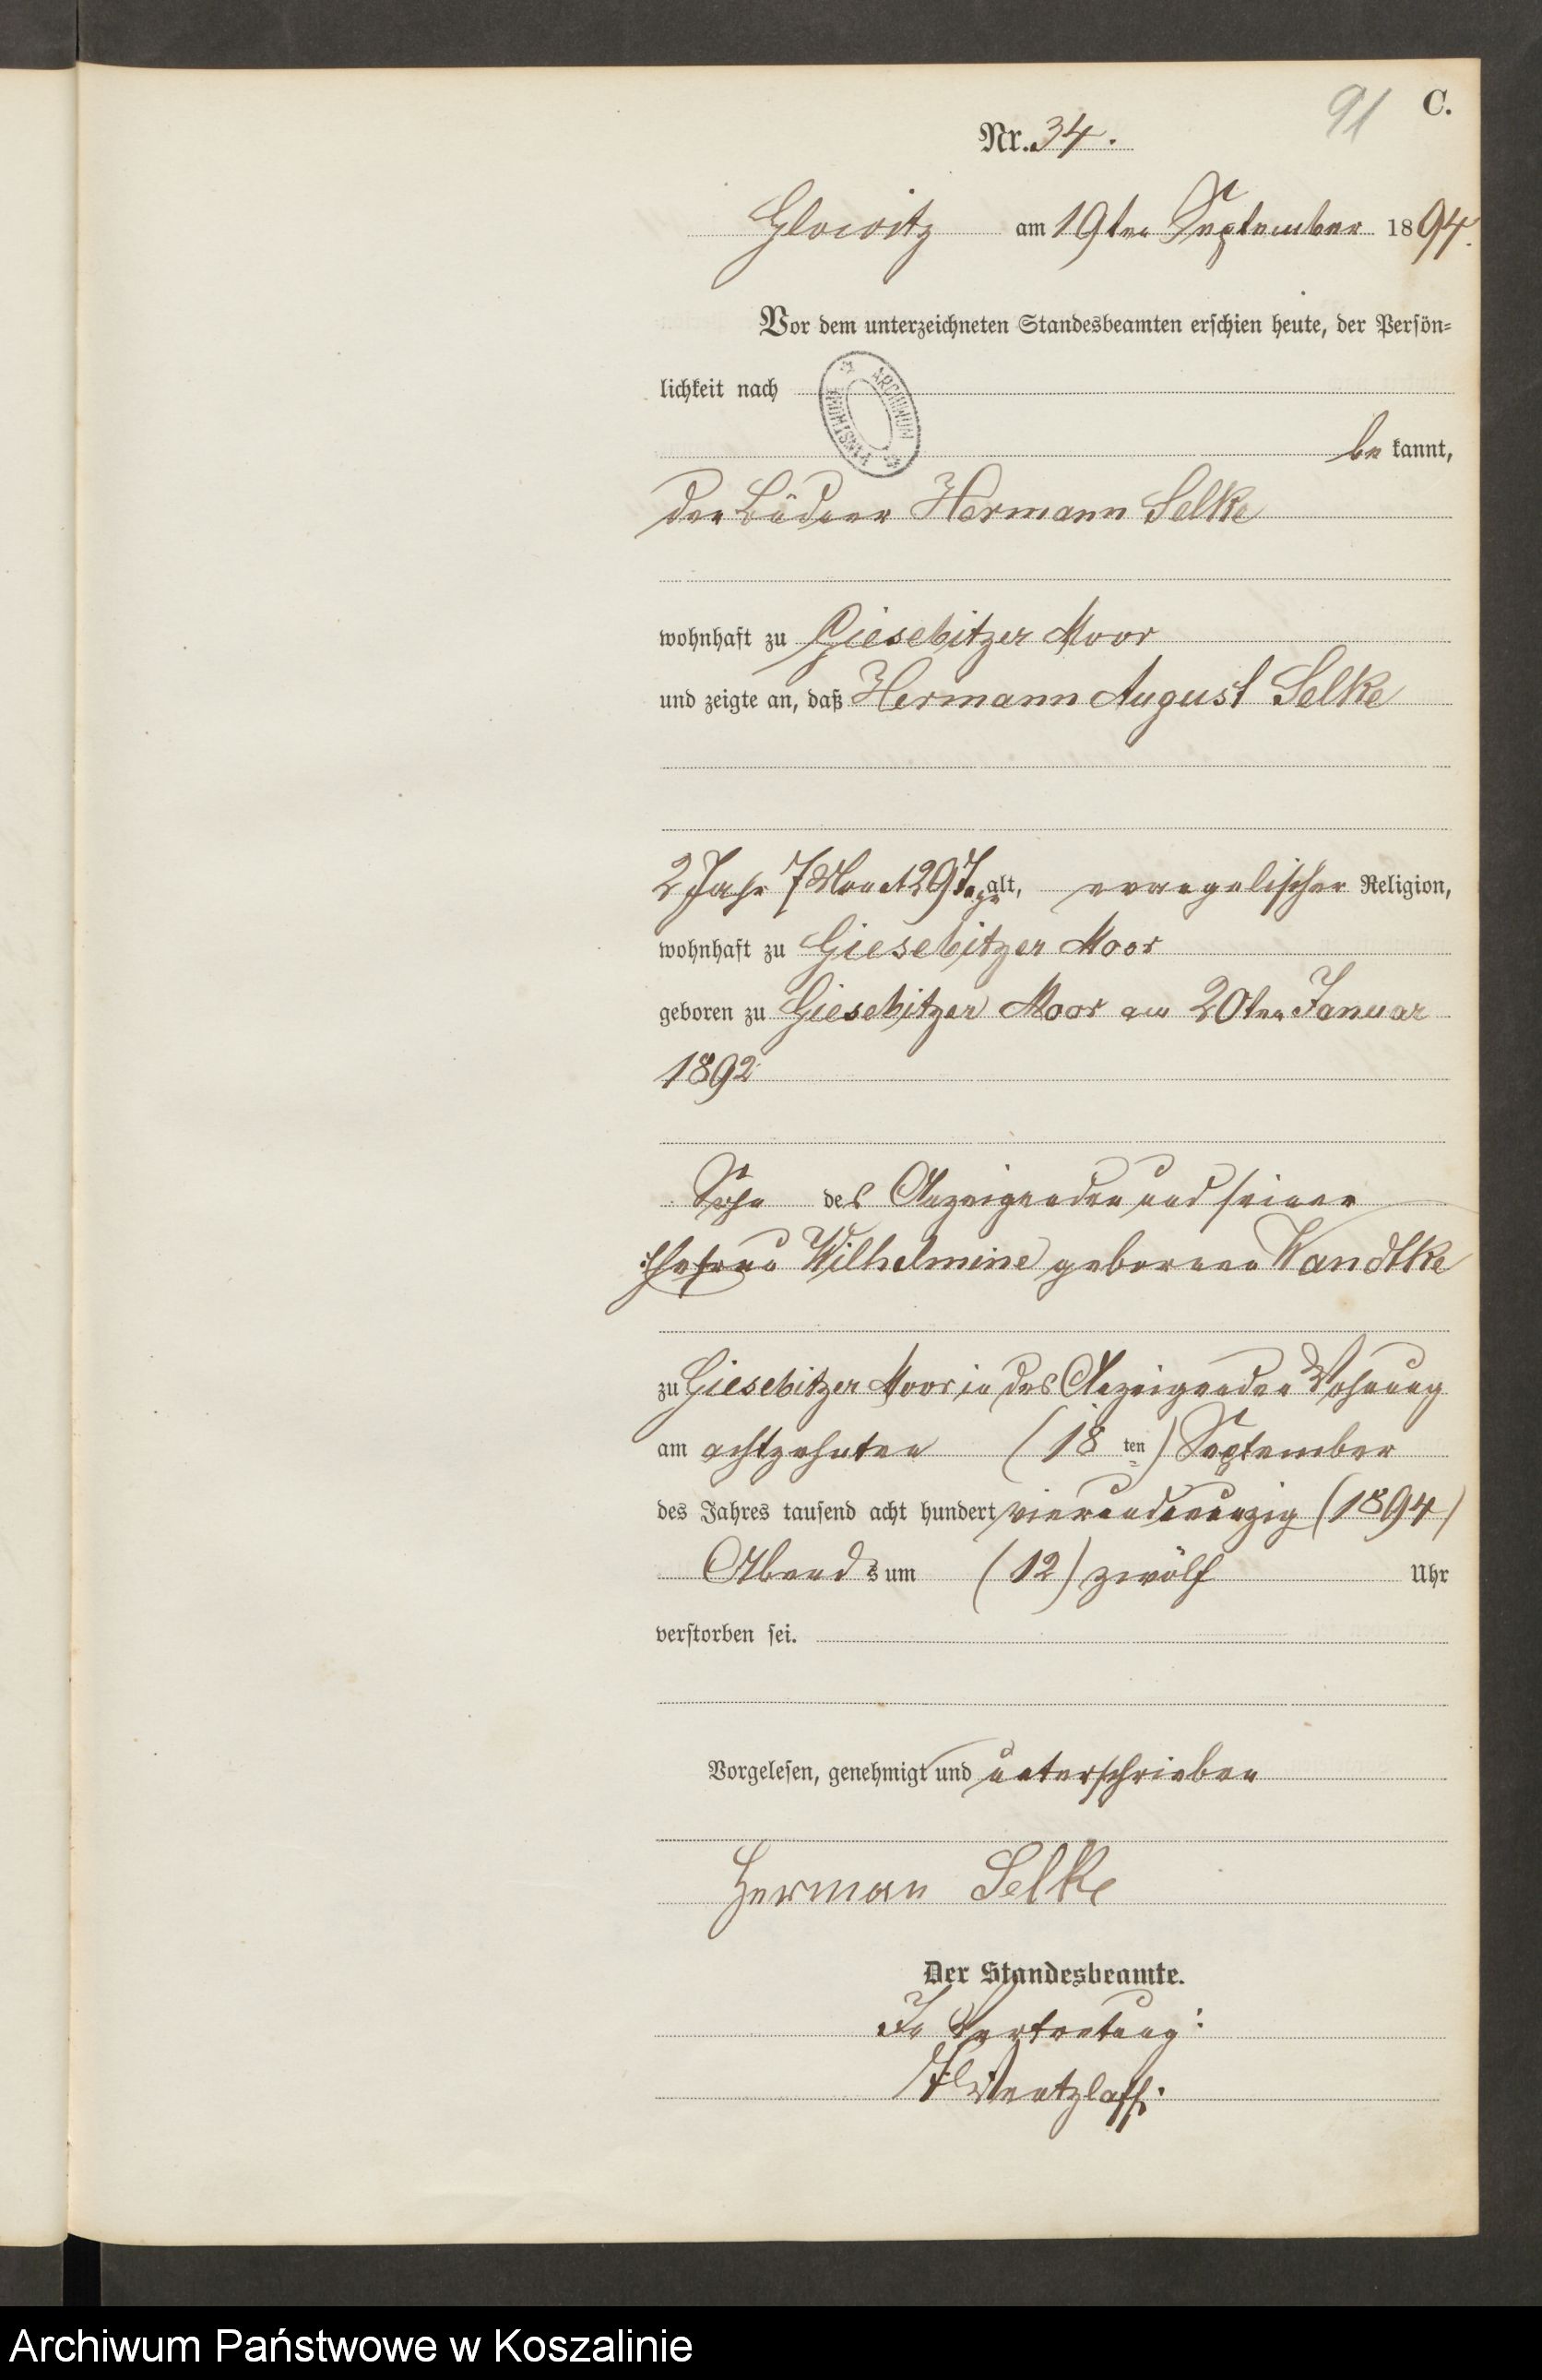 91 C.
Nr. 34.
Glowitz am 19ten September 1894.
Vor dem unterzeichneten Standesbeamten erschien heute, der Persön-
lichkeit nach
ARCHIWUM
bekannt,
der Büdner Hermann Selke
wohnhaft zu Giesebitzer Moor
und zeigte an, daß Hermann August Selke
2 Jahr 7 Monat 29 Tage alt, evangelischer Religion,
wohnhaft zu Giesebitzer Moor
geboren zu Giesebitzer Moor am 20ten Januar
1892
Sohn des Anzeigenden und seiner
Ehefrau Wilhelmine geborenen Wandtke
zu Giesebitzer Moor in des Anzeigenden Wohnung
am achtzehnten (18ten) September
des Jahres tausend acht hundert vierundneunzig (1894)
Abends um (12) zwölf Uhr
verstorben sei.
Vorgelesen, genehmigt und unterschrieben
Herman Selke
Der Standesbeamte.
In Vertretung:
Wentzlaff.
Archiwum Państwowe w Koszalinie